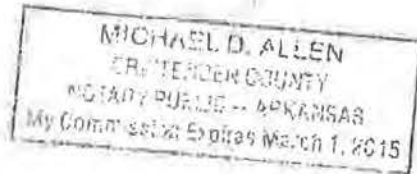 MICHAEL D. ALLEN
CRITTENDEN COUNTY
NOTARY PUBLIC -- ARKANSAS
My Commission Expires March 1, 2015